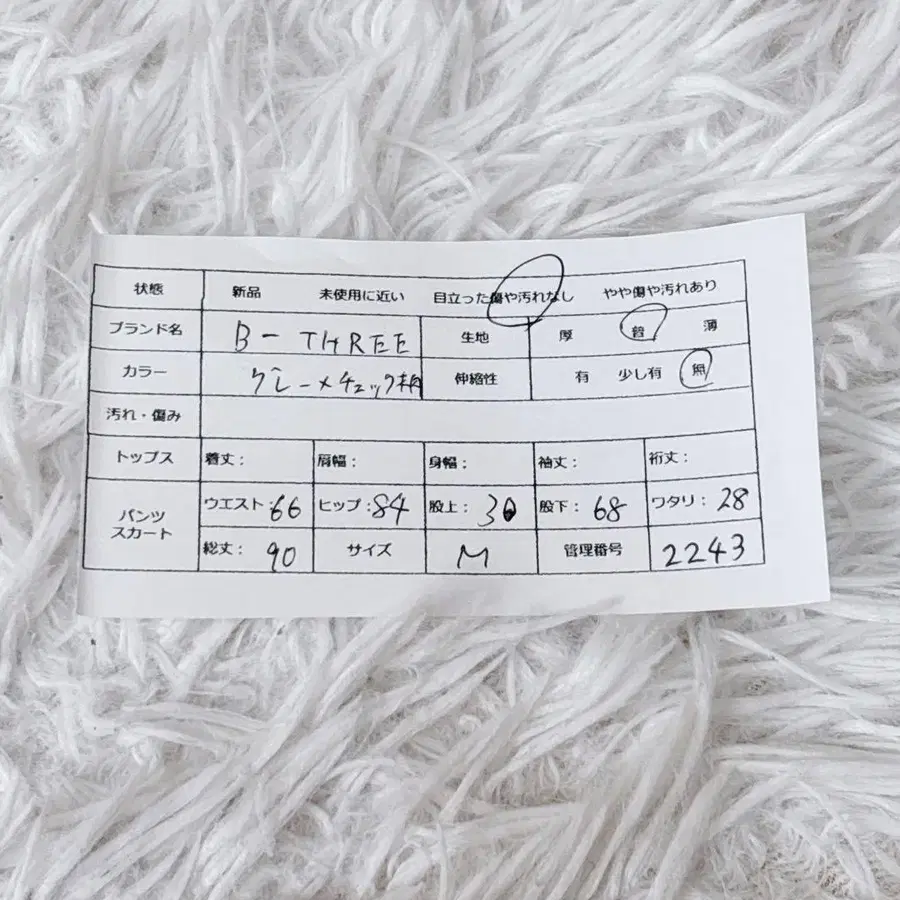 状態 新品 未使用に近い 目立った傷や汚れなし やや傷や汚れあり
ブランド名 B-THREE 生地 厚 普 薄
カラー グレーメチェック柄 伸縮性 有 少し有 無
汚れ・傷み
トップス 着丈: 肩幅: 身幅: 袖丈: 裄丈:
パンツ スカート ウエスト:66 ヒップ:84 股上:30 股下:68 ワタリ:28
総丈:90 サイズ M 管理番号 2243